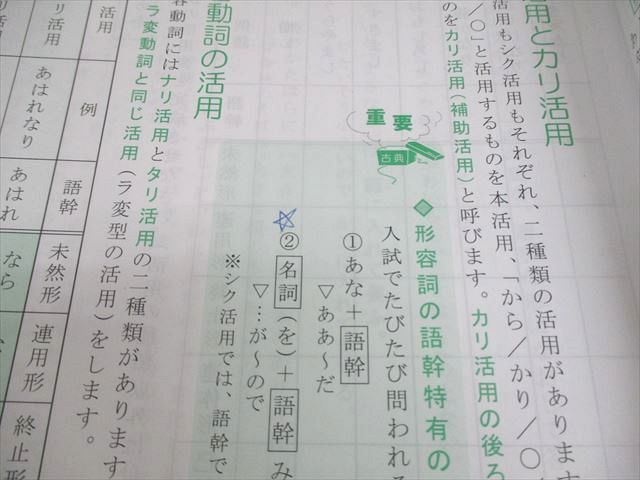 用とカリ活用
活用もシク活用もそれぞれ、二種類の活用があります
／○」と活用するものを本活用、「から／かり／○／
のをカリ活用（補助活用）と呼びます。カリ活用の後ろ
重要
古典
◆形容詞の語幹特有の
入試でたびたび問われる
①あな＋語幹
▽ああ～だ
②名詞（を）＋語幹み
▽…が～ので
※シク活用では、語幹で
動詞の活用
容動詞にはナリ活用とタリ活用の二種類があります
ラ変動詞と同じ活用（ラ変型の活用）をします。
活用 例 語幹 未然形 連用形 終止形
リ活用 あはれなり あはれ なら